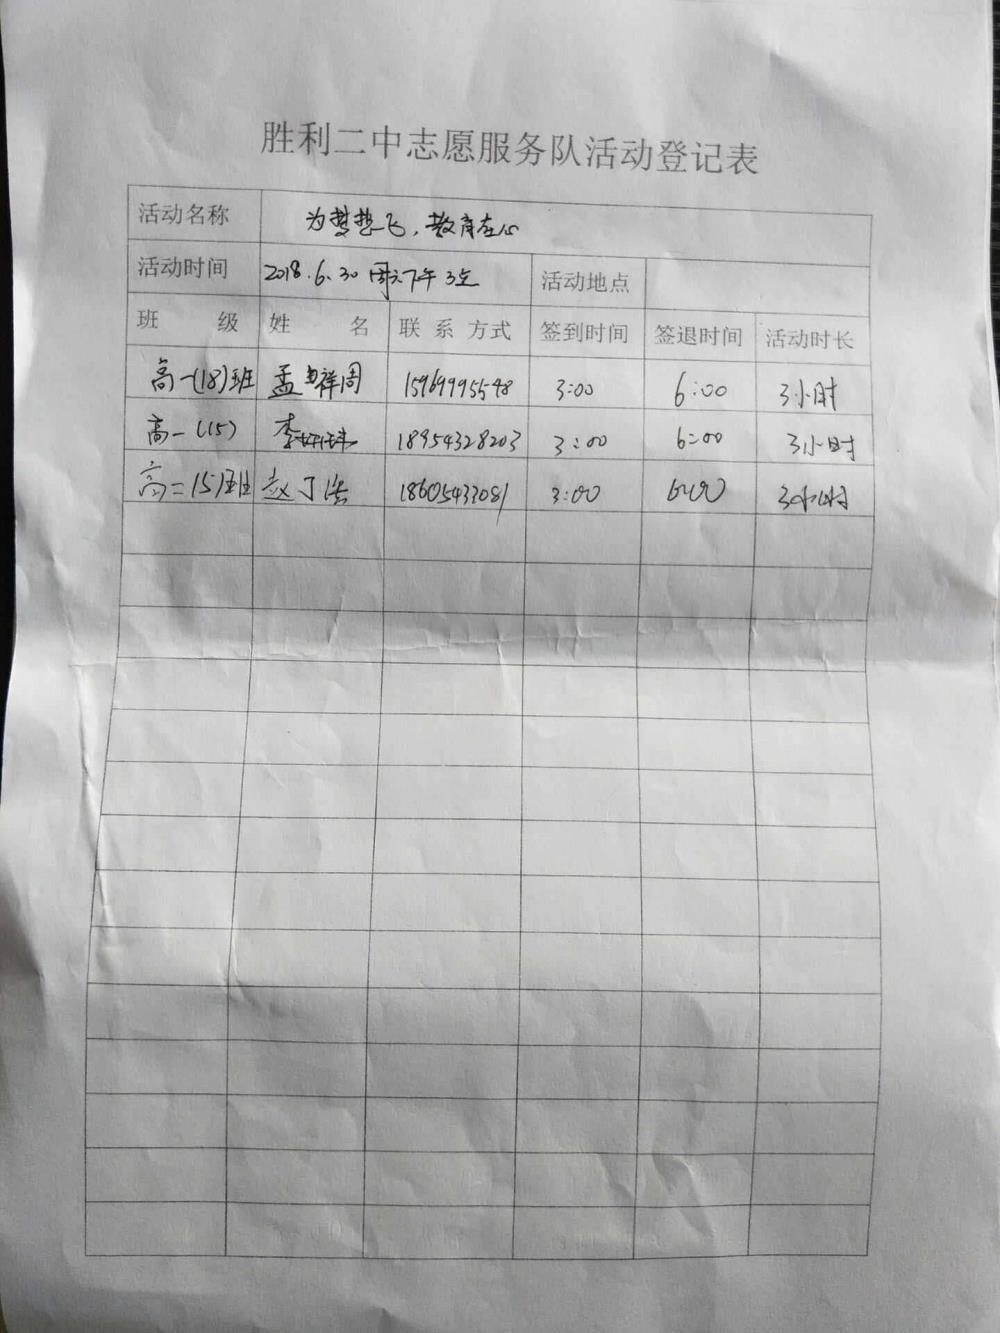 胜利二中志愿服务队活动登记表
活动名称 为梦想飞,教育在心
活动时间 2018.6.30 周六下午3点 活动地点
班 级 姓 名 联 系 方式 签到时间 签退时间 活动时长
高一(18)班 孟 祥周 15969995548 3:00 6:00 3小时
高一(15) 李 18954328203 3:00 6:00 3小时
高二15班 赵丁浩 18605433081 3:00 6:00 3小时